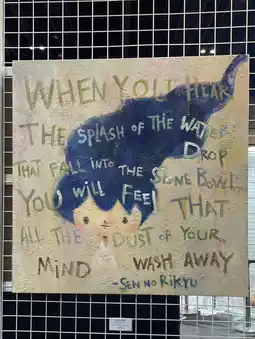 WHEN YOU HEAR
THE SPLASH OF THE WATER
DROP
THAT FALL INTO THE STONE BOWL
YOU WILL FEEL THAT
ALL THE DUST OF YOUR
MIND WASH AWAY
-SEN NO RIKYU